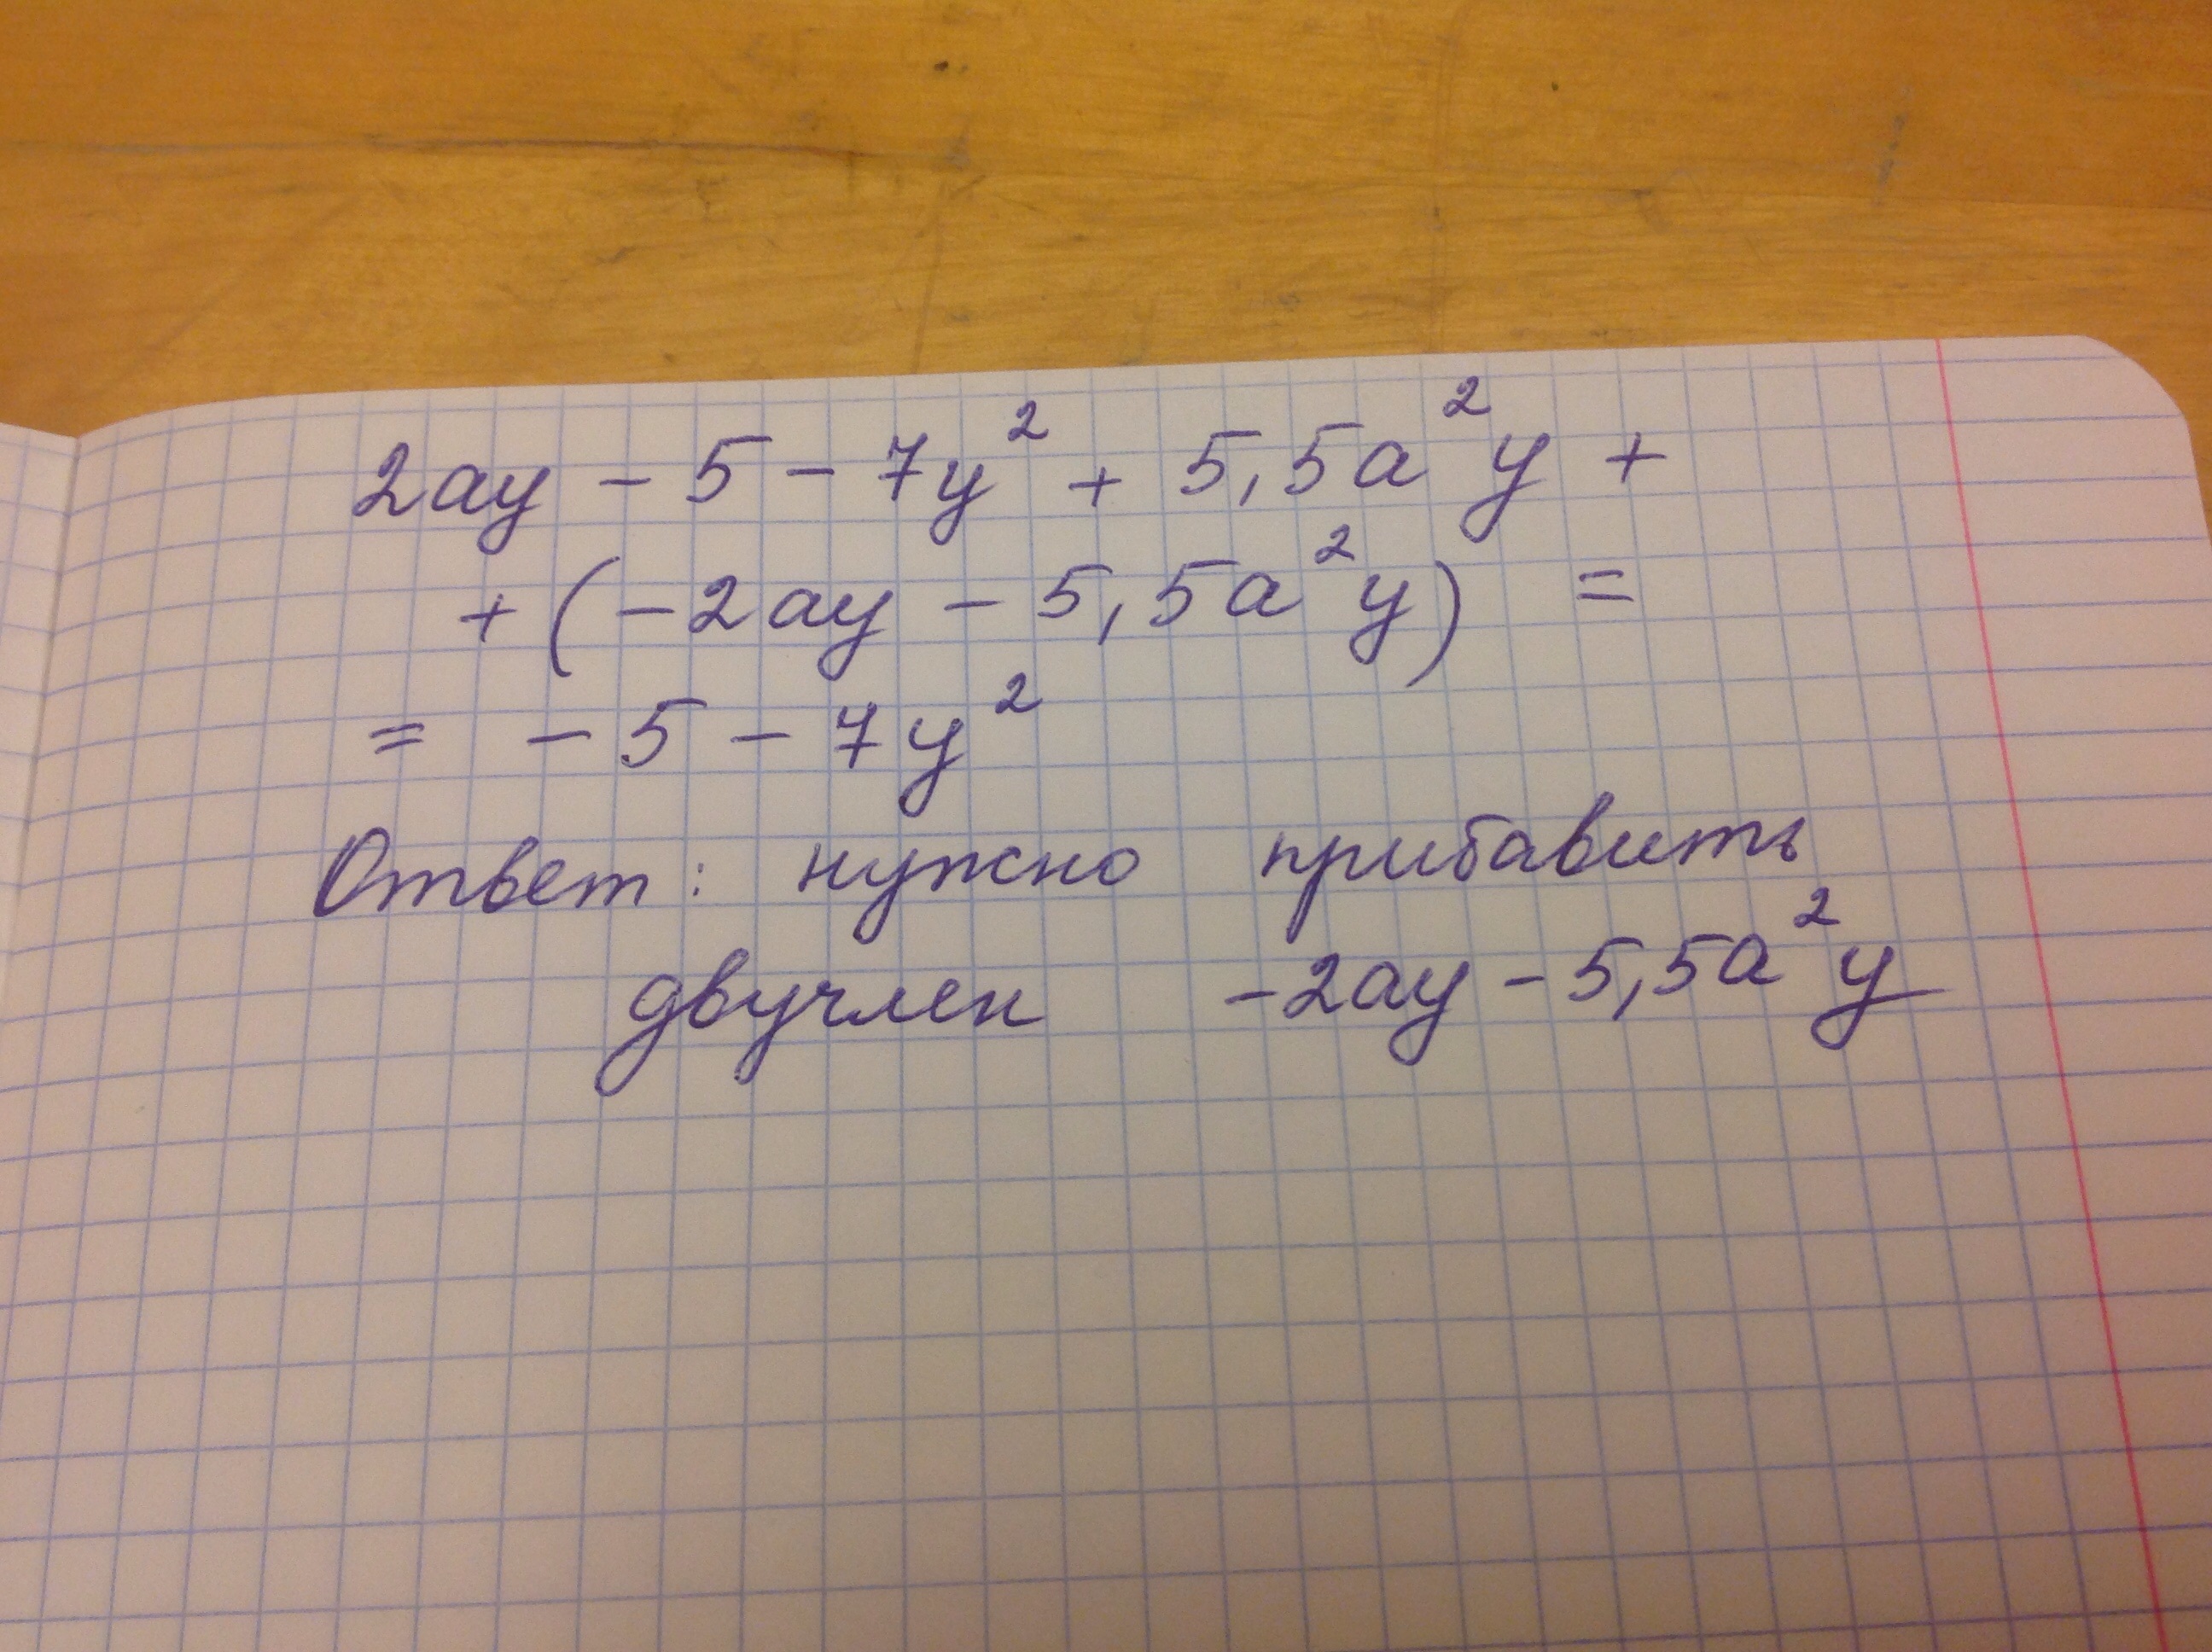 2ay - 5 - 7y² + 5,5a²y +
+ (-2ay - 5,5a²y) =
= -5 - 7y²
Ответ: нужно прибавить
двучлен -2ay - 5,5a²y